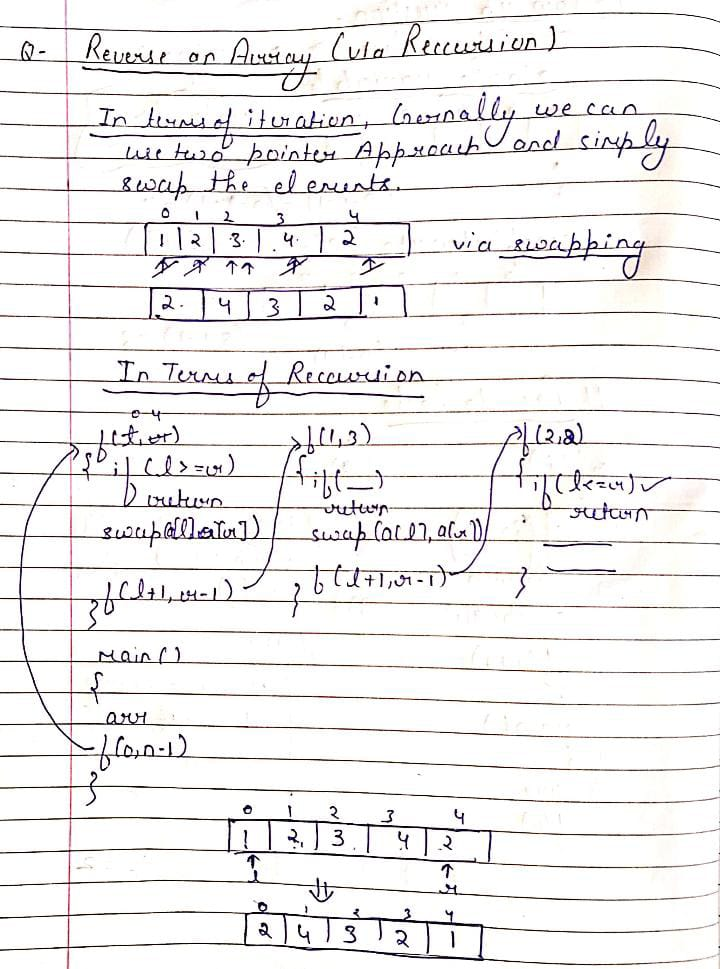 Q- Reverse an Array (via Reccursion)
In terms of iteration, Gernally we can
use two pointer Approach and simply
swap the elements.
0 1 2 3 4
1 2 3 4 2 via swapping
2 4 3 2 1
In Terms of Reccursion
0 4
f(l, r) f(1,3) f(2,2)
{ if (l>=r) { if(__) { if(l<=r) ✓
return return return
swap(a[l], a[r]) swap(a[l], a[r])
f(l+1, r-1) f(l+1, r-1)
} } }
main()
{
arr
f(0, n-1)
}
0 1 2 3 4
1 2 3 4 2
l r
0 1 2 3 4
2 4 3 2 1